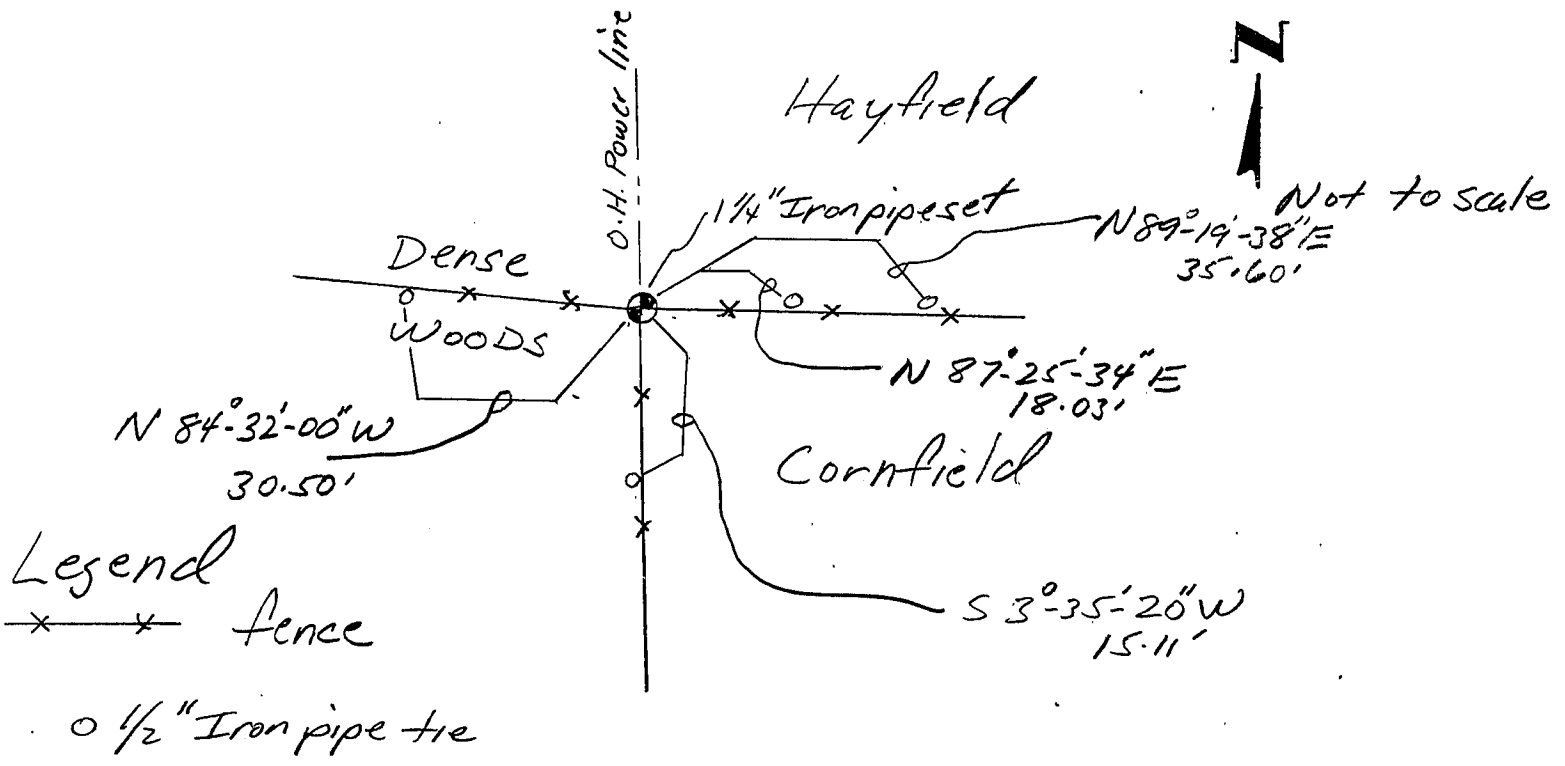 N
O.H. Power line
Hayfield
Not to scale
1 1/4" Iron pipe set
N 89°-19'-38" E
35.60'
Dense
WOODS
N 87°-25'-34" E
18.03'
N 84°-32'-00" W
30.50'
Cornfield
Legend
fence
S 3°-35'-20" W
15.11'
1/2" Iron pipe tie